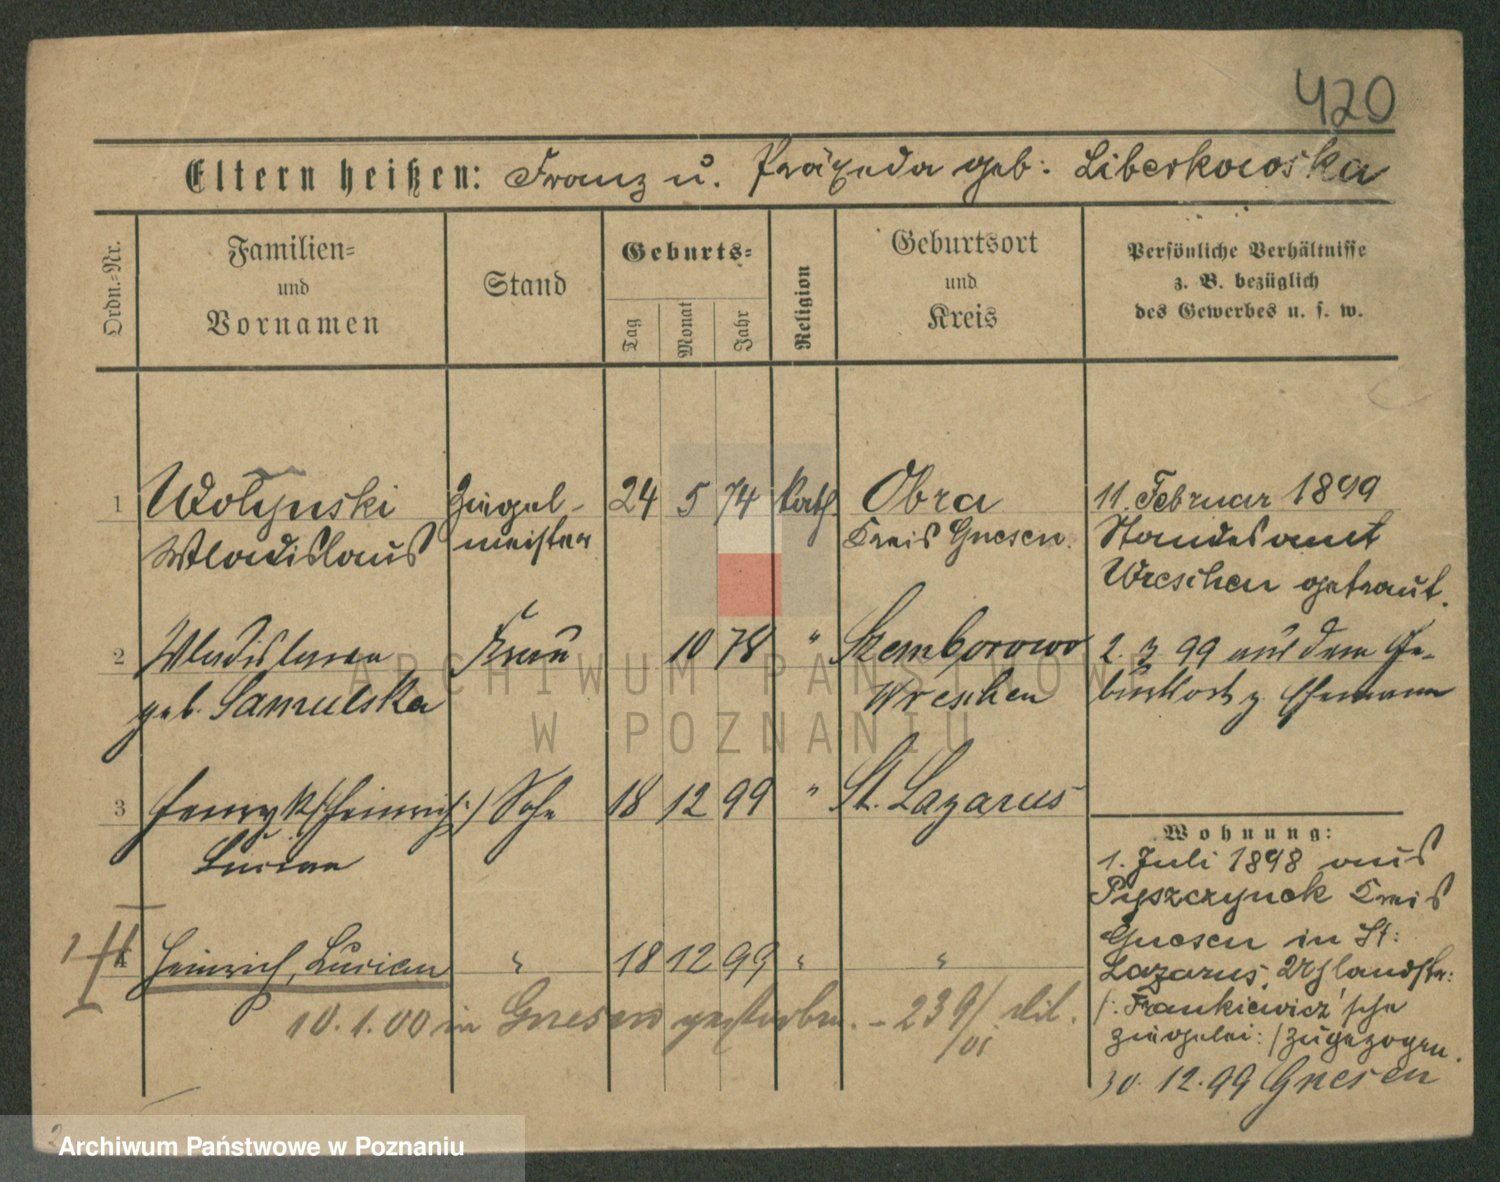 420
Eltern heißen: Franz u. Präxeda geb: Liberkowska
Ordn.-Nr.
Familien-
und
Vornamen
Stand
Geburts-
Tag
Monat
Jahr
Religion
Geburtsort
und
Kreis
Persönliche Verhältnisse
z. B. bezüglich
des Gewerbes u. s. w.
1 Wolynski Ziegel- 24 5 74 kath. Obra 11. Februar 1899
Wladislaus meister Kreis Gnesen. Standesamt
Wreschen getraut.
2 Wladislawa Frau 10 78 " Szemborowo 2. 3. 99 aus dem Ge-
geb. Samulska Wreschen burtsort z. Ehemann
3 Henryk /:Heinrich:/ Sohn 18 12 99 " St. Lazarus
Lucian
Wohnung:
1. Juli 1898 aus
Pyszczynek Kreis
Gnesen in St:
Lazarus,
/: Frankiewicz'sche
Ziegelei: / zugezogen.
30. 12. 99 Gnesen
4 Heinrich, Lucian " 18 12 99 " "
10. 1. 00 in Gnesen gestorben. - 239/01
ARCHIWUM PAŃSTWOWE
W POZNANIU
Archiwum Państwowe w Poznaniu